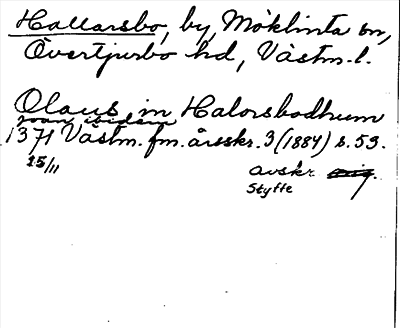 Hallarsbo, by, Möklinta sn,
Övertjurbo hd, Västm. l.
Olaus in Halorsbodhum
joan ibidem
1371 Västm. fm. årsskr. 3 (1884) s. 53.
25/11 avskr. orig.
Styffe